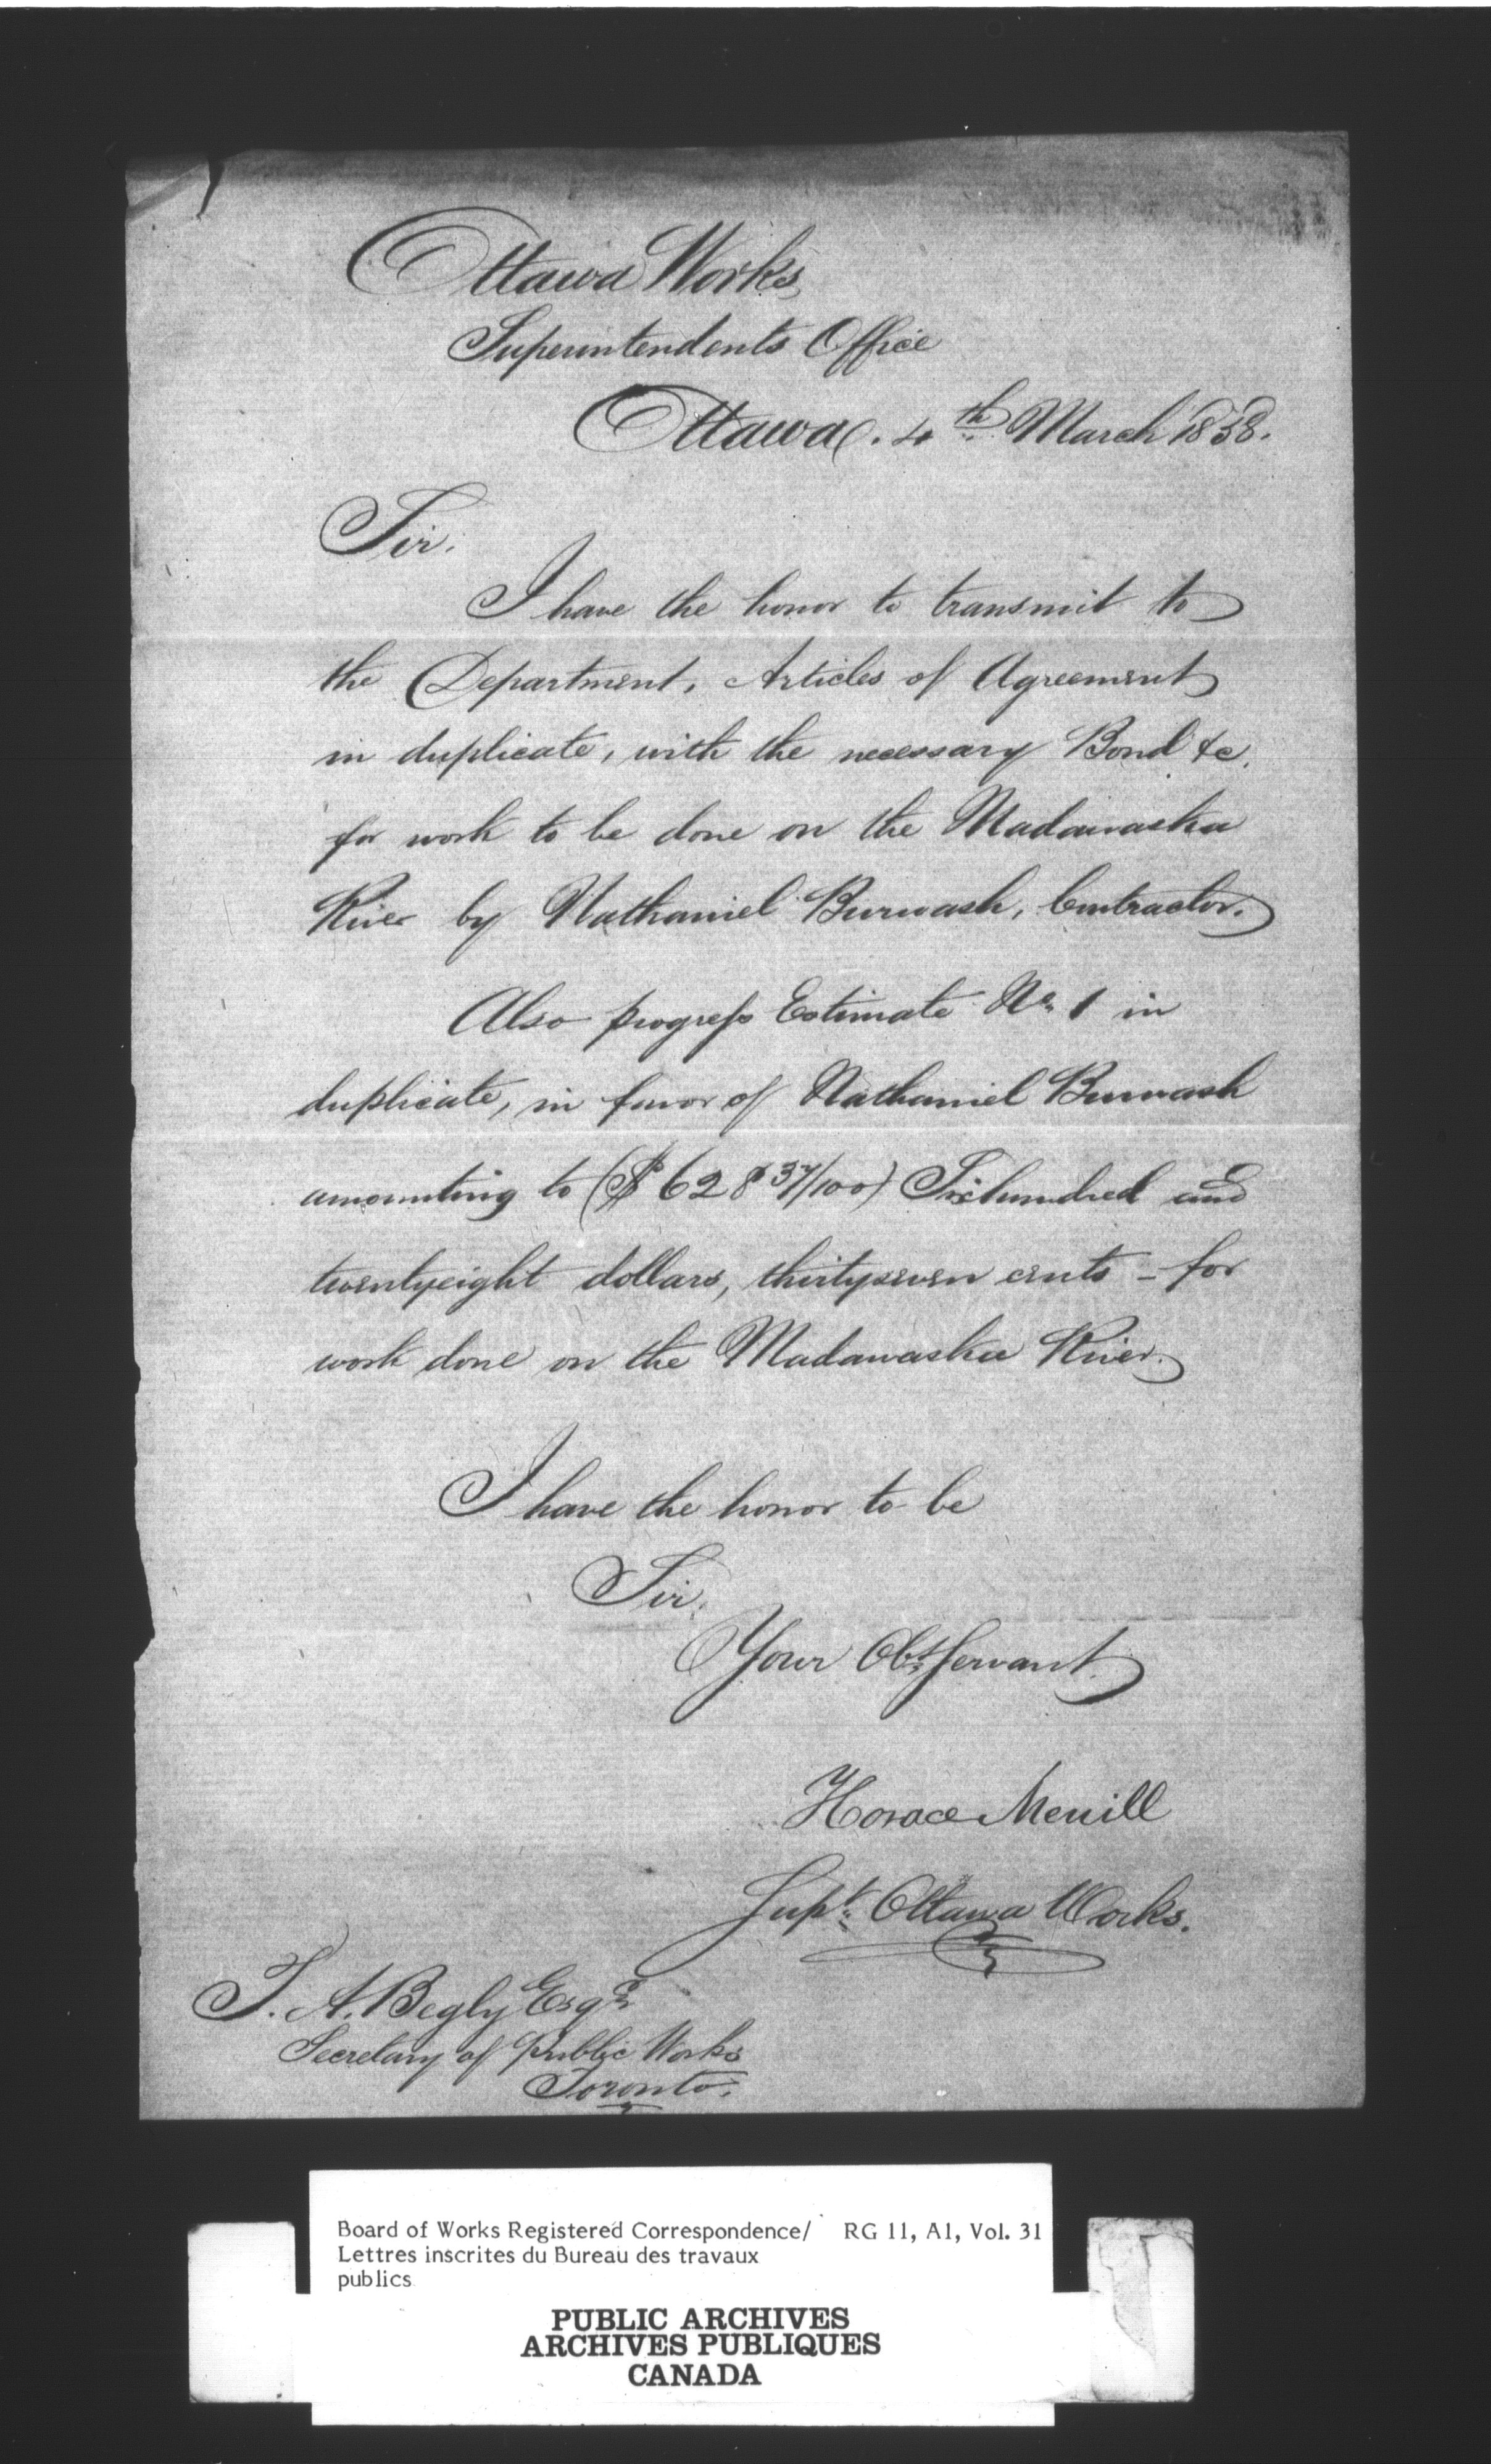 Ottawa Works
Superintendents Office
Ottawa. 4th March 1858.
Sir.
I have the honor to transmit to
the Department, Articles of Agreement
in duplicate, with the necessary Bond &c.
for work to be done on the Madawaska
River by Nathaniel Burwash, Contractor.
Also progress Estimate No. 1 in
duplicate, in favor of Nathaniel Burwash
amounting to ($628 37/100) Sixhundred and
twentyeight dollars, thirtyseven cents - for
work done on the Madawaska River.
I have the honor to be
Sir.
Your Obt. Servant.
Horace Merrill
Supt. Ottawa Works.
T. A. Begly Esqr.
Secretary of Public Works
Toronto.
Board of Works Registered Correspondence/ RG 11, A1, Vol. 31
Lettres inscrites du Bureau des travaux
publics
PUBLIC ARCHIVES
ARCHIVES PUBLIQUES
CANADA